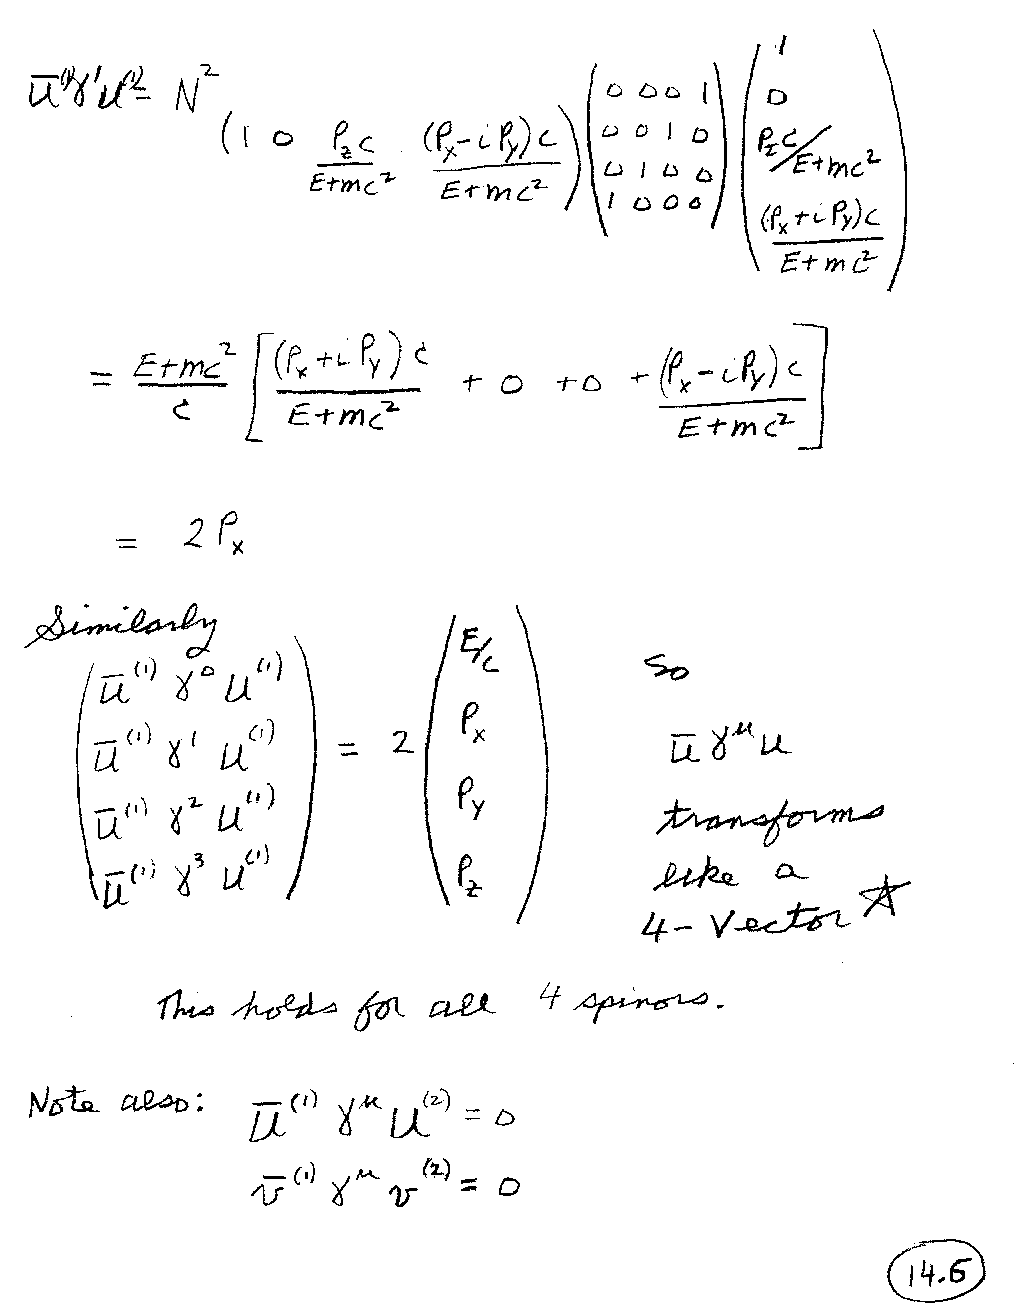 ū⁽¹⁾γ¹u⁽¹⁾ = N² (1 0 P_z c/(E+mc²) (P_x-iP_y)c/(E+mc²)) (0 0 0 1; 0 0 1 0; 0 1 0 0; 1 0 0 0) (1; 0; P_z c/E+mc²; (P_x+iP_y)c/(E+mc²))
= (E+mc²)/c [(P_x+iP_y)c/(E+mc²) + 0 + 0 + (P_x-iP_y)c/(E+mc²)]
= 2P_x
Similarly
(ū⁽¹⁾ γ⁰ u⁽¹⁾; ū⁽¹⁾ γ¹ u⁽¹⁾; ū⁽¹⁾ γ² u⁽¹⁾; ū⁽¹⁾ γ³ u⁽¹⁾) = 2 (E/c; P_x; P_y; P_z)
so
ū γ^μ u
transforms
like a
4-Vector ☆
This holds for all 4 spinors.
Note also: ū⁽¹⁾ γ^μ u⁽²⁾ = 0
v̄⁽¹⁾ γ^μ v⁽²⁾ = 0
14.6